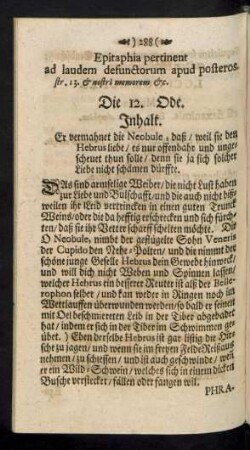 ) 288 (
Epitaphia pertinent
ad laudem defunctorum apud posteros.
str. 13. & nostri memorem &c.
Die 12. Ode.
Inhalt.
Er vermahnet die Neobule / daß / weil sie den
Hebrus liebe / es nur offenbahr und unge-
scheuet thun solle / denn sie ja sich solcher
Liebe nicht schämen dürffte.
DAs sind armselige Weiber / die nicht Lust haben
zur Liebe und Bulschafft / und die auch nicht biß-
weilen ihr Leid vertrincken in einen guten Trunck
Weins / oder die da hefftig erschrecken und sich fürch-
ten / daß sie ihr Vetter scharff schelten möchte. Die
O Neobule, nimbt der geflügelte Sohn Veneris
der Cupido den Nehe-Polten / und die nimmt der
schöne junge Geselle Hebrus dein Gewebe hinweck /
und will dich nicht Weben und Spinnen lassen /
welcher Hebrus ein besserer Reuter ist alß der Belle-
rophon selber / und kan weder in Ringen noch im
Wettlauffen überwunden werden / so bald er seinen
mit Oel beschmiereten Leib in der Tiber abgebadet
hat / indem er sich in der Tiber im Schwimmen geü-
bet.) Eben derselbe Hebrus ist gar listig die Hir-
sche zu jagen / und wenn sie im freyen Felde Reißaus
nehmen / zu schiessen / und ist auch geschwinde / wen̄
er ein Wild-Schwein / welches sich in einem dicken
Busche verstecket / fällen oder fangen will.
PHRA-